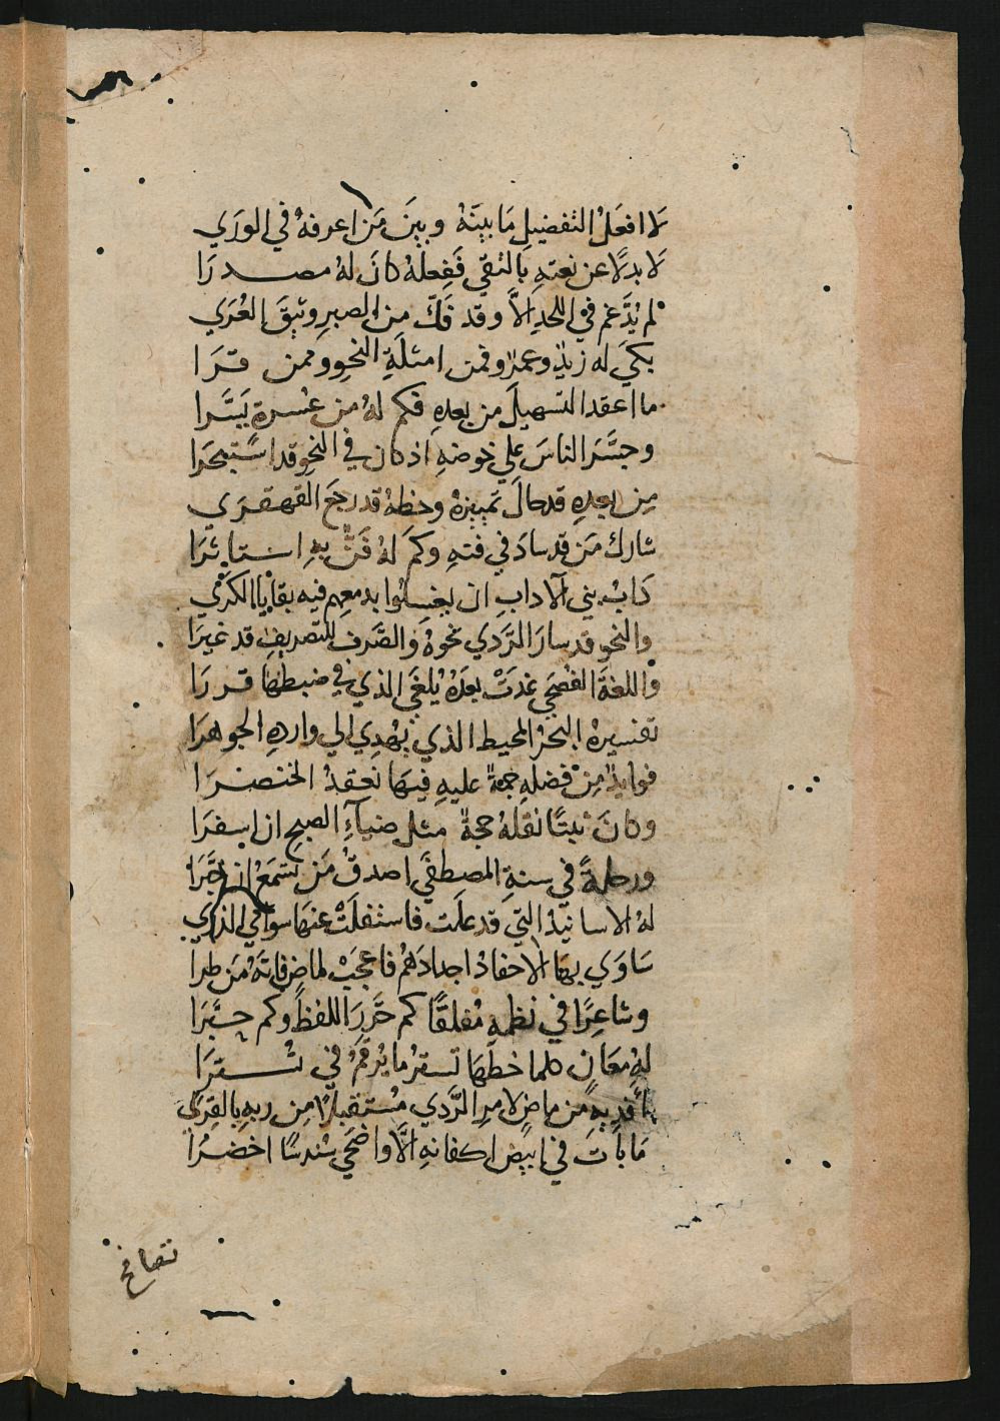 لا افعلُ التفضيلِ مَا بينَهُ وبينَ مَن اعرفهُ في الورَي
لا بدلًا عن نعتهِ بالتقي فَفِعلهُ كانَ لهُ مصدرَا
لم يُدَّغم في اللحدِ الاَّ وقد فَكَّ مِن الصبرِ وثيقَ العُرَي
بكيَ له زيدٌ وعمرٌو فمن امثلةِ النحوِ وممن قرَا
ما اعقد التسهيلَ من بعدهِ فكم لهُ من عُسرةٍ يَسَّرا
وجسَّرَ الناسَ علي خوضهِ اذ كان في النحوِ قد استبحرَا
مِن بعدهِ قد حالَ تمييزهُ وحظهُ قد رجعَ القهقرَي
شارك مَن قد سادَ في فنهِ وكم لهُ فَنٌّ بهِ استاثرَا
دابُ بني الآدابِ ان يغسِلوا بدمعِهم فيه بقايا الكرَي
والنحو قد سارَ الرَّدي نحوهُ والصَّرف للتصريفِ قد غيرَا
واللغةُ الفصحَي غدَتْ بعدَهُ يُلغَي الذي في ضبطهَا قررَا
تفسيرهُ البحرُ المحيط الذي يهْدِي الي واردهِ الجوهرَا
فوايدٌ مِن فضلهِ جمةٌ عليهِ فيهَا نعقدُ الخنصرَا
وكانَ ثبتًا نقلهُ حجةٌ مثل ضيآءِ الصبحِ ان اسفرَا
ورحلةً في سنةِ المصطفَي اصدقُ مَن تسْمَعُ ان خَبَّرَا
لهُ الاسانيدُ التي قد علَت فاستفلَتْ عنهَا سوامي الذري
سَاوَي بهَا الاحفادُ اجدادَهُم فاعجَبْ لماضٍ فاتَهُ مَن طرا
وشاعِرًا في نظمهِ مُفلقًا كم حَرَّرَ اللفظَ وكم حبَّرَا
لهُ معَانٍ كلما خطهَا تسترُ ما يُرقمُ في تُسترَا
أفديهِ من ماضٍ لامرِ الرَّدي مُستقبلًا مِن ربهِ بالقِرَي
مَا باتَ في ابيضِ اكفانهِ الَّا واضحَي سُندسًا اخضرَا
تصافح